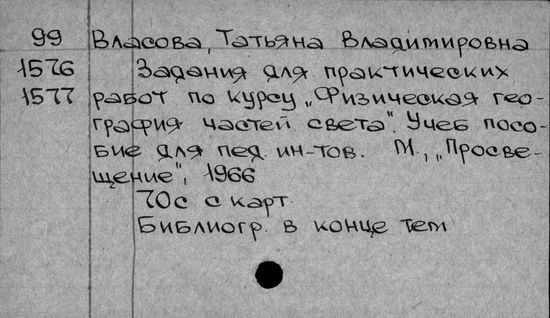 99 Власова, Татьяна Владимировна
1576 Задания для практических
1577 работ по курсу „Физическая гео-
графия частей света". Учеб посо-
бие для пед. ин-тов. М., „Просве-
щение", 1966
70с с карт.
Библиогр. в конце тем